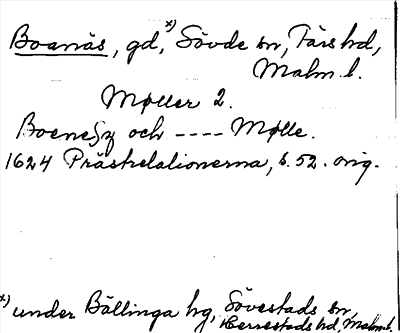 Boanäs, gd,*) Sövde sn, Färs hd,
Malm. l.
Møller 2.
Boeneſz och ---- Mølle.
1624 Prästrelationerna, s. 52. orig.
*) under Bällinga hg, Sövestads sn,
Herrestads hd, Malm. l.